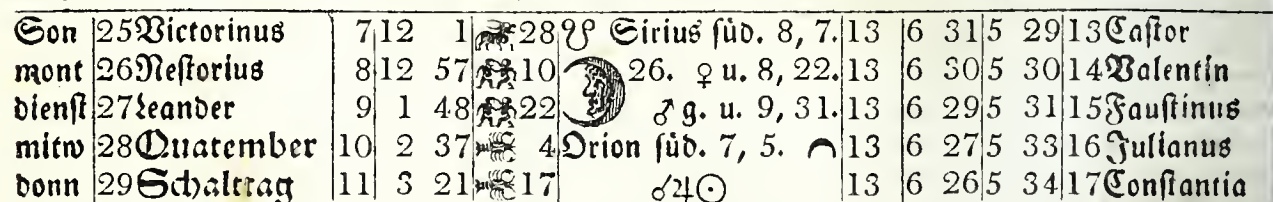 Son 25 Victorinus 7 12 1 28 ☋ Sirius süd. 8, 7. 13 6 31 5 29 13 Castor
mont 26 Nestorius 8 12 57 10 26. ♀ u. 8, 22. 13 6 30 5 30 14 Valentin
dienst 27 Leander 9 1 48 22 ♂ g. u. 9, 31. 13 6 29 5 31 15 Faustinus
mitw 28 Quatember 10 2 37 4 Orion süd. 7, 5. 13 6 27 5 33 16 Julianus
donn 29 Schalttag 11 3 21 17 ☌♃☉ 13 6 26 5 34 17 Constantia